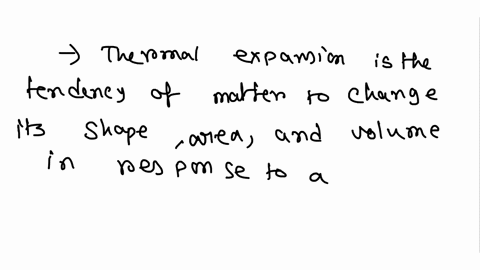 → Thermal expansion is the
tendency of matter to change
its shape, area, and volume
in response to a